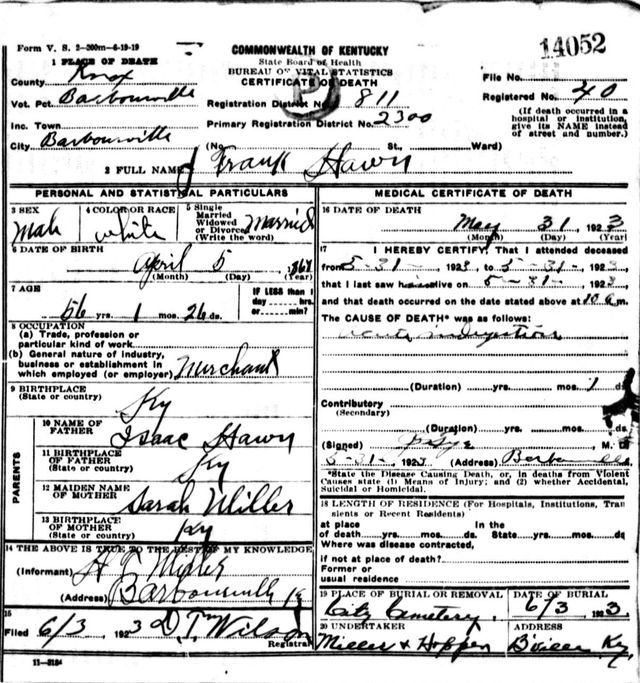 Form V. S. 2-200m-6-19-19
COMMONWEALTH OF KENTUCKY
14052
1 PLACE OF DEATH
State Board of Health
BUREAU OF VITAL STATISTICS
CERTIFICATE OF DEATH
County Knox
File No.
Vot. Pct. Barbourville
Registration District No. 811
Registered No. 40
Inc. Town
Primary Registration District No. 2300
(If death occurred in a hospital or institution, give its NAME instead of street and number.)
City Barbourville
(No. St., Ward)
2 FULL NAME Frank Hawn
PERSONAL AND STATISTICAL PARTICULARS
3 SEX Male
4 COLOR OR RACE White
5 Single Married Widowed or Divorced (Write the word) Married
6 DATE OF BIRTH
April 5 1867
(Month) (Day) (Year)
7 AGE
56 yrs. 1 mos. 26 ds.
IF LESS than 1 day ___ hrs. or ___ min.?
8 OCCUPATION
(a) Trade, profession or particular kind of work
(b) General nature of industry, business or establishment in which employed (or employer) Merchant
9 BIRTHPLACE
(State or country) Ky
PARENTS
10 NAME OF FATHER Isaac Hawn
11 BIRTHPLACE OF FATHER
(State or country) Ky
12 MAIDEN NAME OF MOTHER Sarah Miller
13 BIRTHPLACE OF MOTHER
(State or country) Ky
14 THE ABOVE IS TRUE TO THE BEST OF MY KNOWLEDGE
(Informant) H T Miller
(Address) Barbourville Ky
15
Filed 6/3 1923 D. T. Wilson
Registrar
11-3184
MEDICAL CERTIFICATE OF DEATH
16 DATE OF DEATH
May 31 1923
(Month) (Day) (Year)
17 I HEREBY CERTIFY, That I attended deceased
from 5-31- 1923, to 5-31- 1923,
that I last saw him alive on 5-31- 1923
and that death occurred on the date stated above at 10 a m.
The CAUSE OF DEATH* was as follows:
acute indigestion
(Duration) yrs. mos. 1 ds.
Contributory
(Secondary)
(Duration) yrs. mos. ds.
(Signed) M. D.
5-31- 1923 (Address) Barbourville
*State the Disease Causing Death, or, in deaths from Violent
Causes state (1) Means of Injury; and (2) whether Accidental,
Suicidal or Homicidal.
18 LENGTH OF RESIDENCE (For Hospitals, Institutions, Tran
sients or Recent Residents)
at place In the
of death yrs. mos. ds. State yrs. mos. ds.
Where was disease contracted,
if not at place of death?
Former or
usual residence
19 PLACE OF BURIAL OR REMOVAL
City Cemetery.
DATE OF BURIAL
6/3 1923.
20 UNDERTAKER
Miller & Hopper
ADDRESS
B'ville Ky